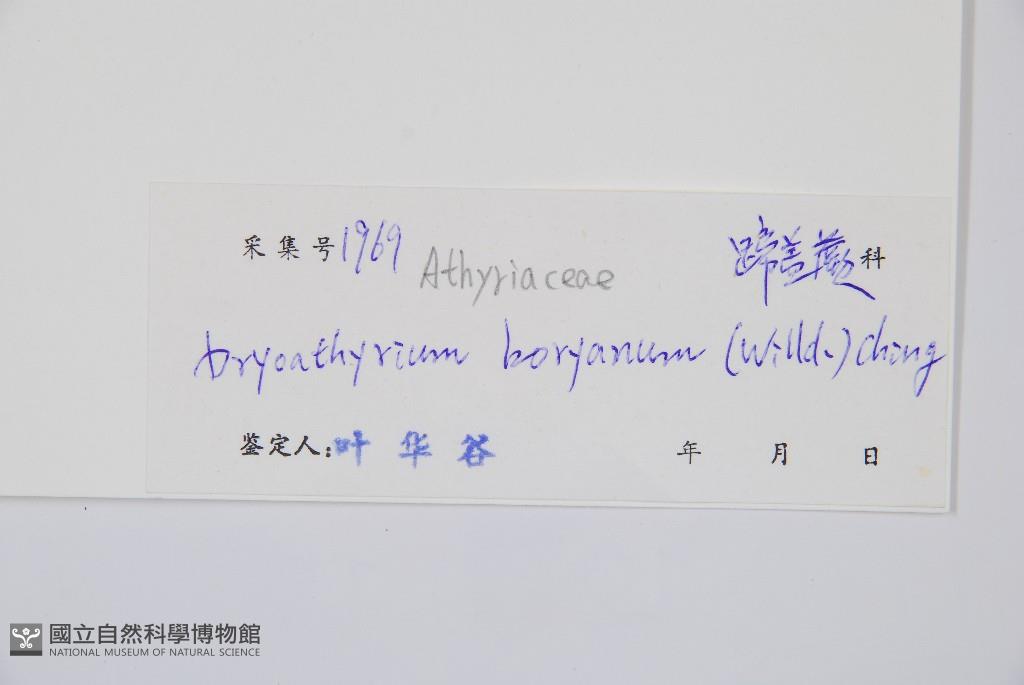 采集号1969 Athyriaceae 蹄盖蕨科
Dryoathyrium boryanum (Willd.) Ching
鉴定人：叶华谷 年 月 日
國立自然科學博物館
NATIONAL MUSEUM OF NATURAL SCIENCE